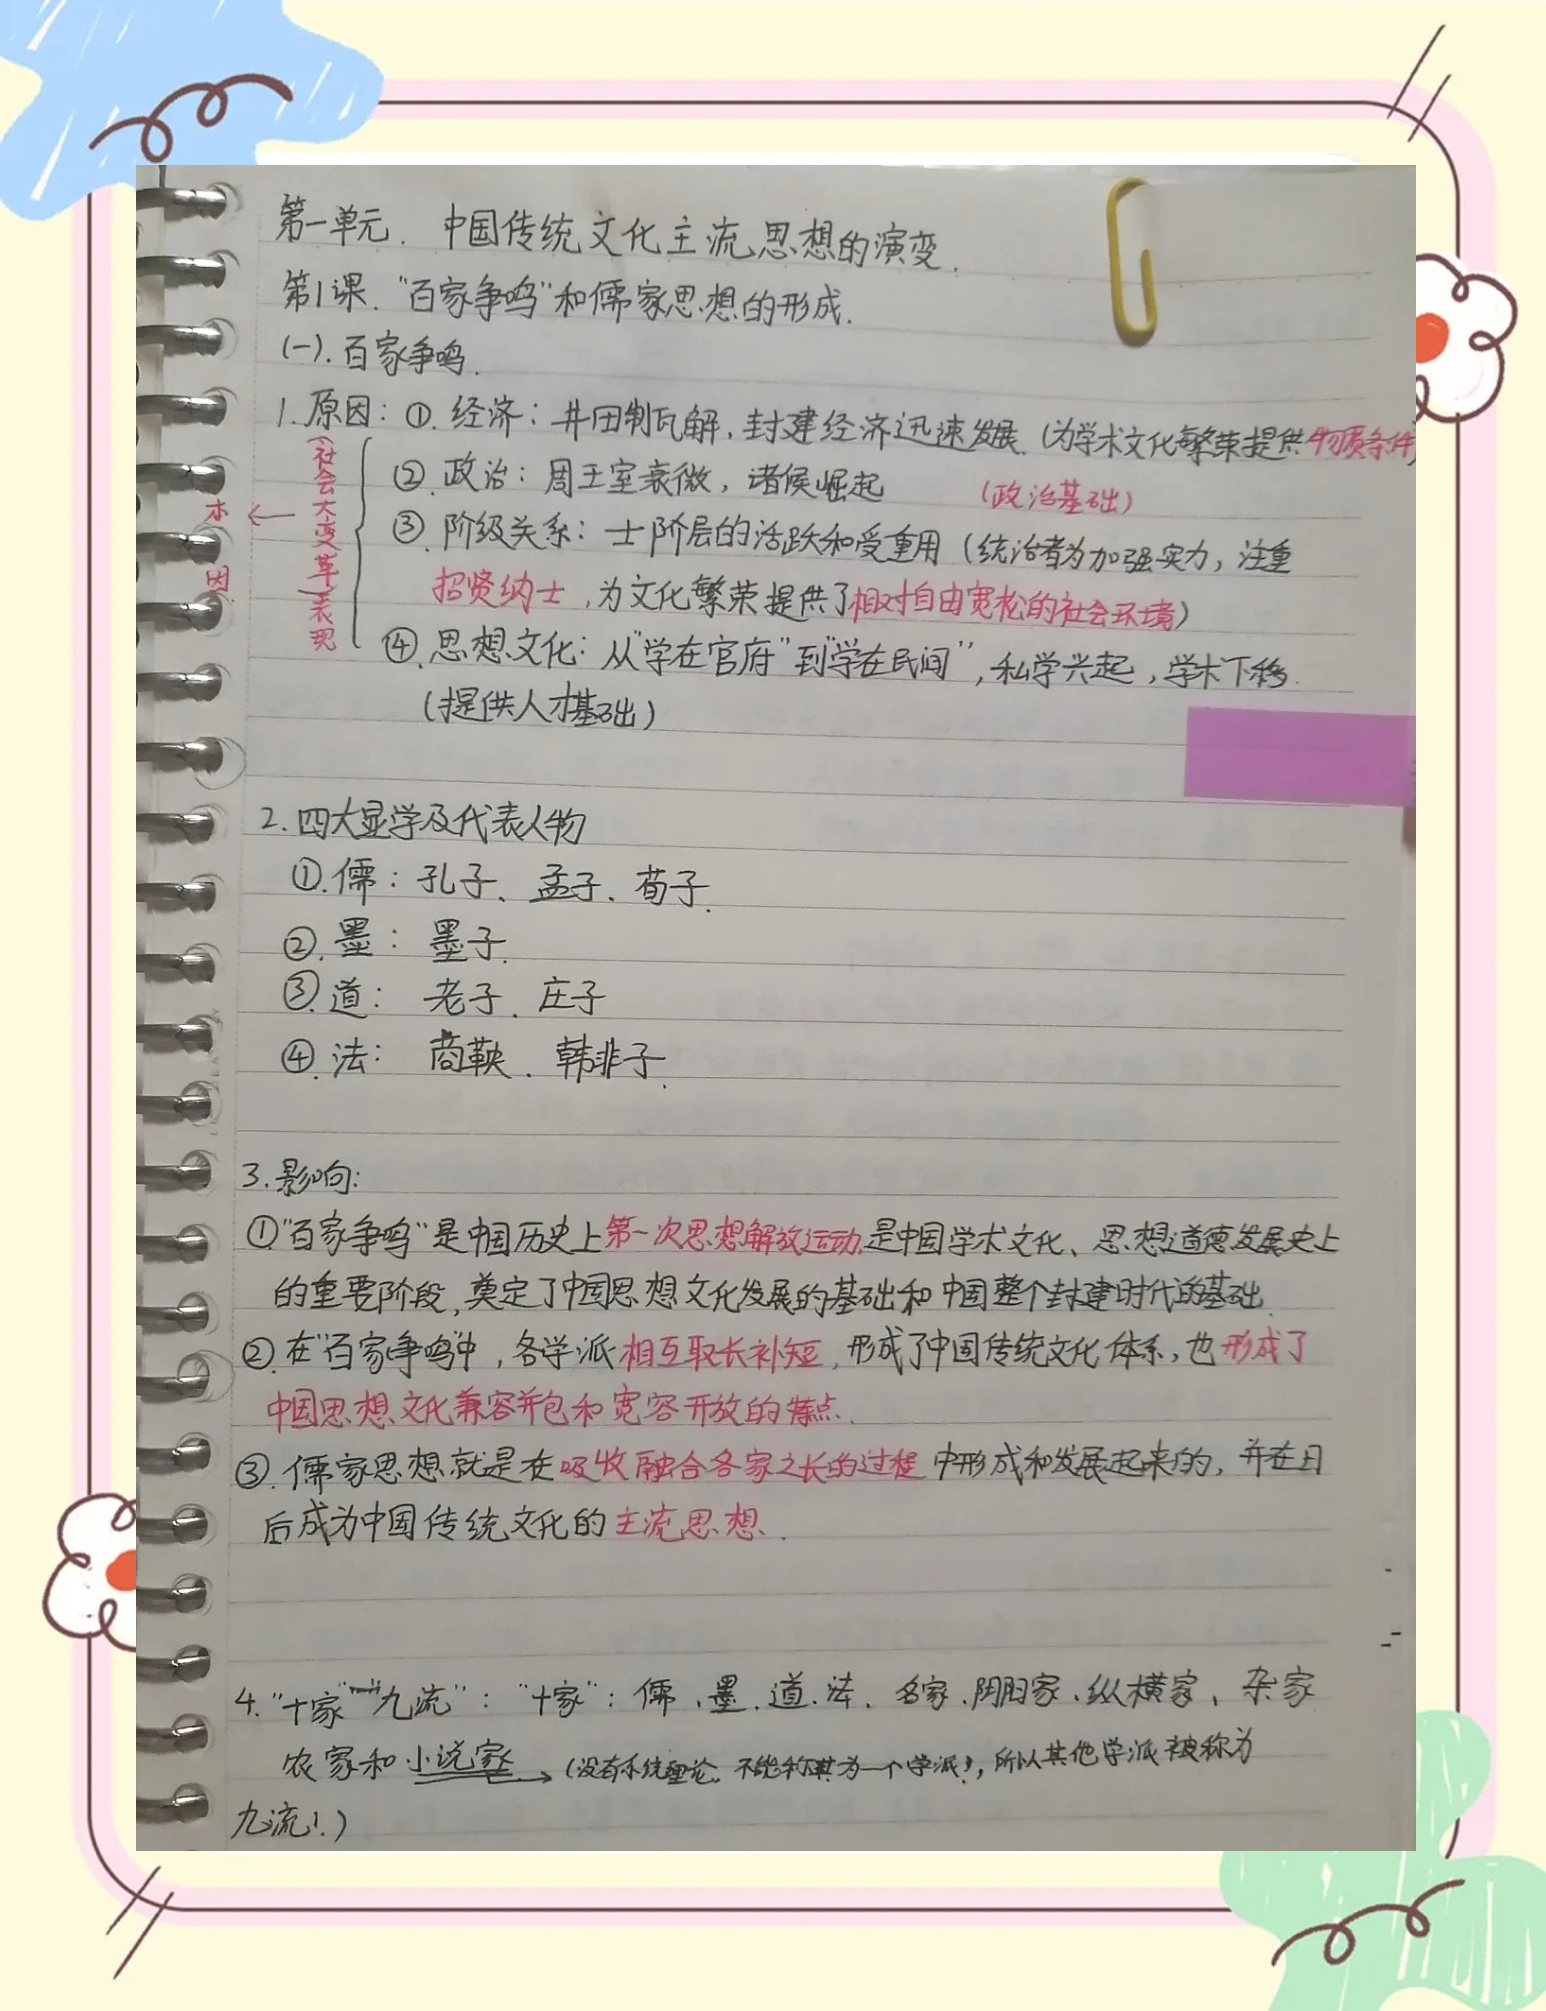 第一单元. 中国传统文化主流思想的演变.
第1课. "百家争鸣"和儒家思想的形成.
(一). 百家争鸣.
1. 原因: ①. 经济: 井田制瓦解, 封建经济迅速发展. (为学术文化繁荣提供物质条件)
②. 政治: 周王室衰微, 诸侯崛起 (政治基础)
③. 阶级关系: 士阶层的活跃和受重用 (统治者为加强实力, 注重
招贤纳士, 为文化繁荣提供了相对自由宽松的社会环境)
④. 思想文化: 从"学在官府"到"学在民间", 私学兴起, 学术下移.
(提供人才基础)
(社会大变革)表现
本因
2. 四大显学及代表人物
①. 儒: 孔子、孟子、荀子.
②. 墨: 墨子.
③. 道: 老子、庄子
④. 法: 商鞅、韩非子.
3. 影响:
①"百家争鸣"是中国历史上第一次思想解放运动,是中国学术文化、思想道德发展史上
的重要阶段, 奠定了中国思想文化发展的基础和中国整个封建时代的基础.
②. 在"百家争鸣"中, 各学派相互取长补短, 形成了中国传统文化体系, 也形成了
中国思想文化兼容并包和宽容开放的特点.
③. 儒家思想就是在吸收融合各家之长的过程中形成和发展起来的, 并在日
后成为中国传统文化的主流思想.
4. "十家""九流": "十家": 儒、墨、道、法、名家、阴阳家、纵横家、杂家
农家和小说家 → (没有系统理论, 不能称其为一个学派!, 所以其他学派被称为
九流!.)